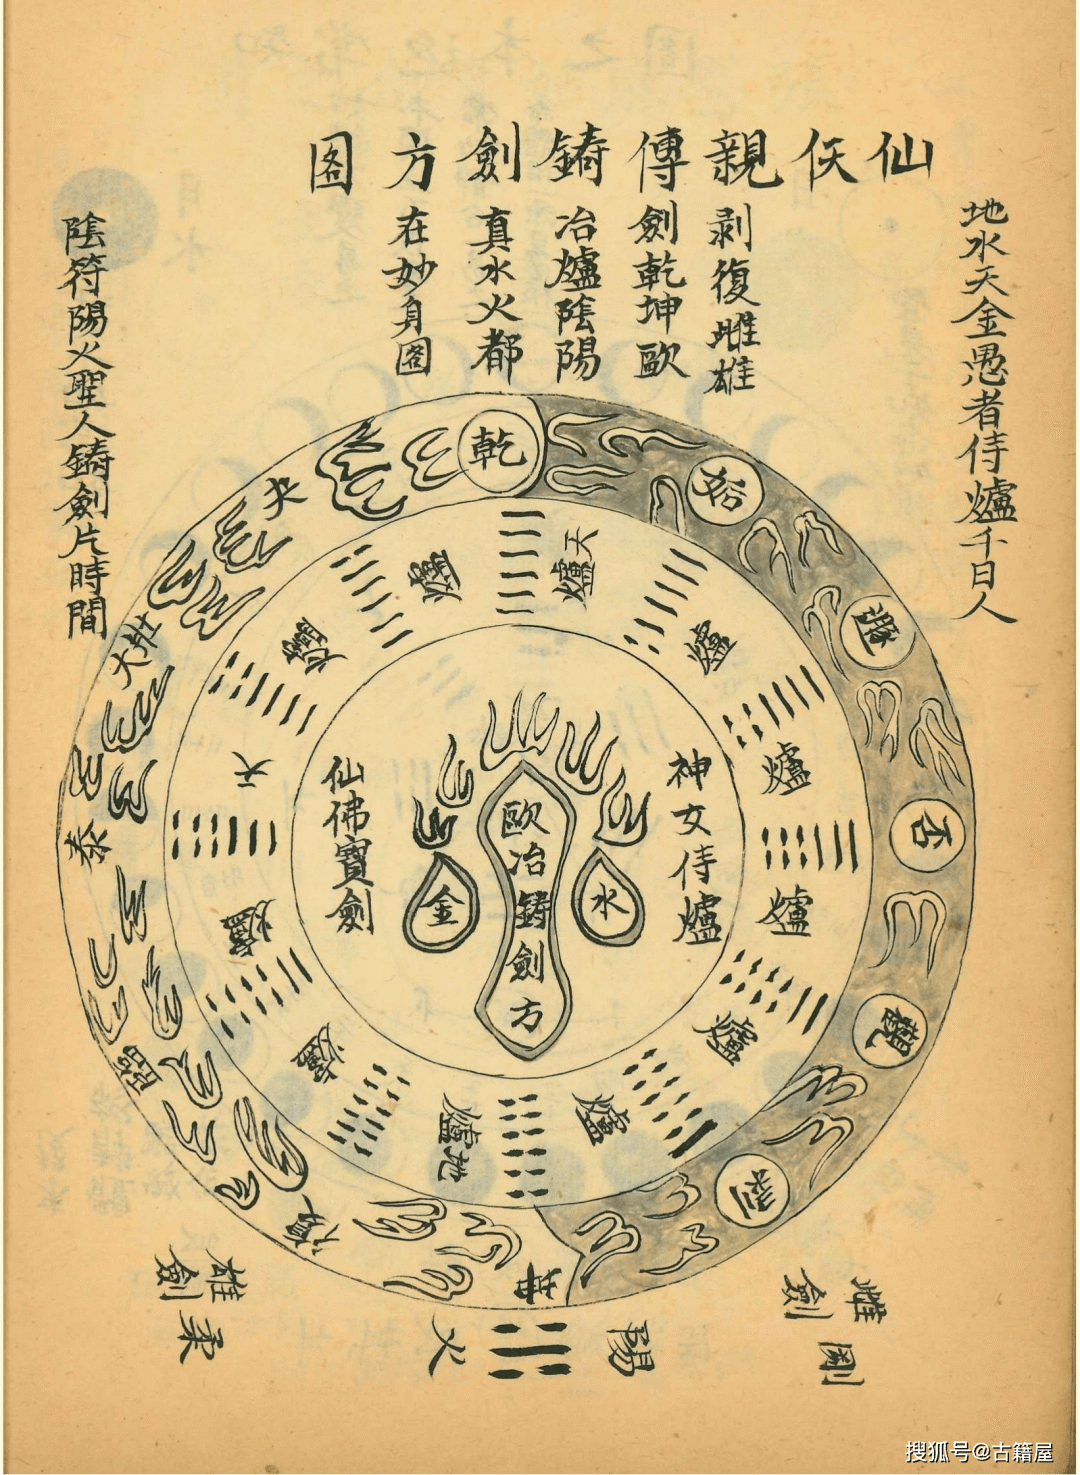 仙仸親傳鑄劍方图
地水天金愚者侍爐千日人
剥復雌雄
劍乾坤歐
冶爐陰陽
真水火都
在妙身圖
陰符陽火聖人鑄劍片時間
乾
姤
遯
否
觀
剥
坤
復
臨
泰
大壯
夬
天爐
爐
爐
爐
爐
爐
地爐
爐
爐
天
爐
爐
神女侍爐
水
歐冶鑄劍方
金
仙佛寶劍
雌劍
剛
陽
火
雄劍
柔
搜狐号@古籍屋